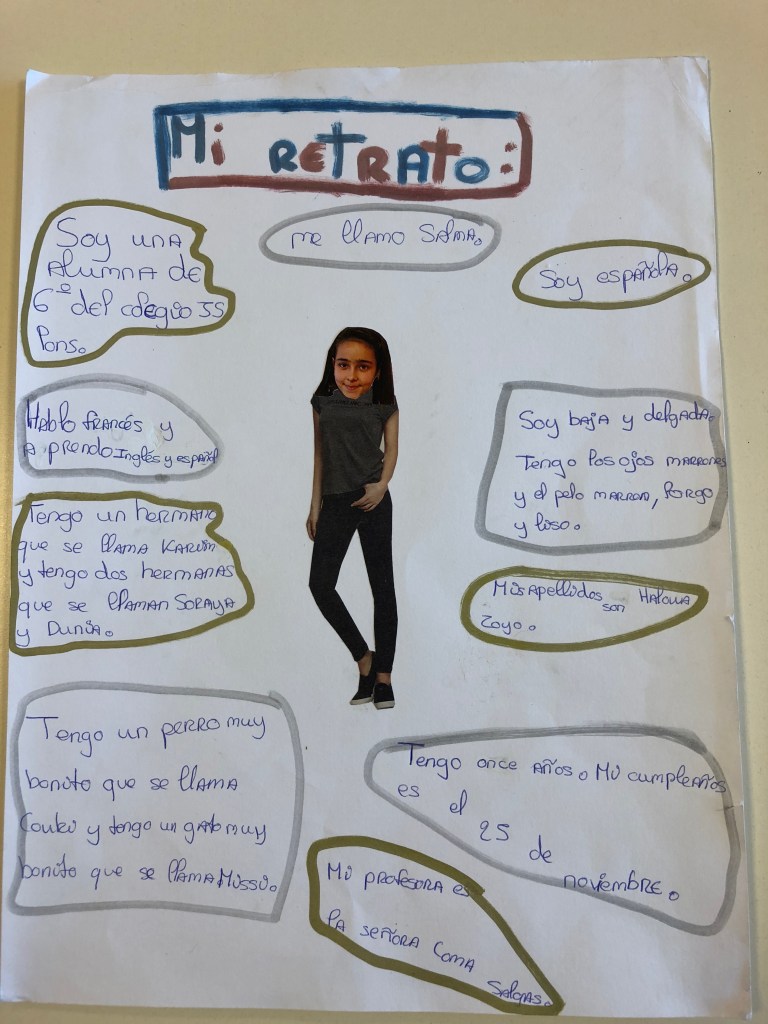 Mi RETRATO:
me llamo Salma.
Soy una
Alumna de
6º del colegio JJ
Pons.
Soy española.
Hablo francés y
aprendo Inglés y español
Soy baja y delgada.
Tengo los ojos marrones
y el pelo marron, largo
y liso.
Tengo un hermano
que se llama Karim
y tengo dos hermanas
que se llaman Soraya
y Dunia.
Mis apellidos son Haloua
Zoyo.
Tengo un perro muy
bonito que se llama
Couki y tengo un gato muy
bonito que se llama Missi.
Tengo once años. Mi cumpleaños
es el 25 de noviembre.
Mi profesora es
la señora Coma
Salgas.